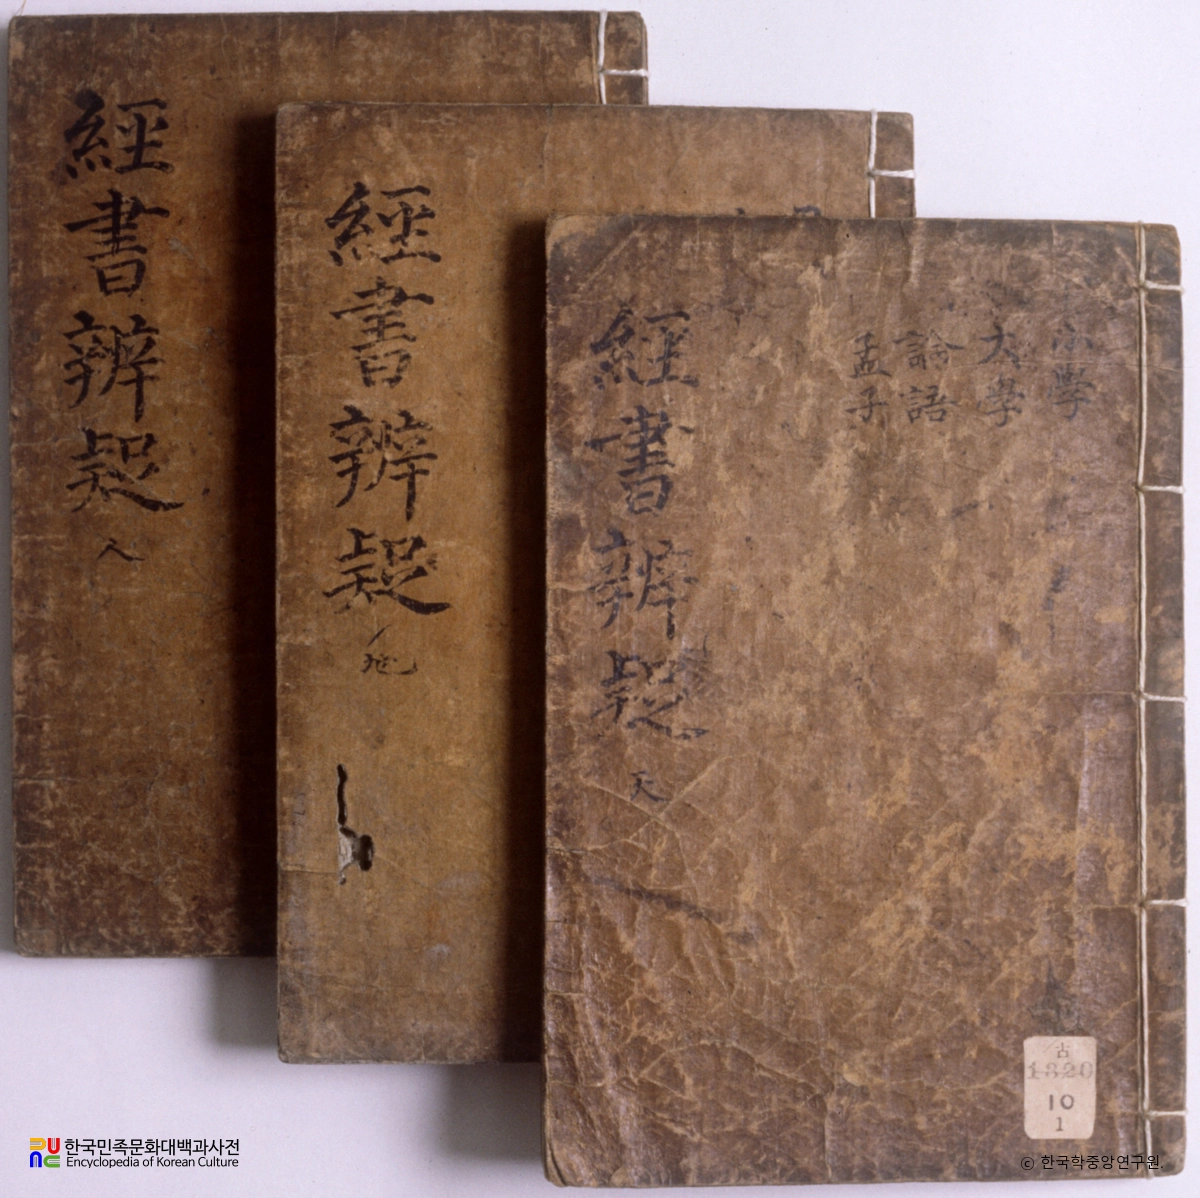 經書辨疑
人
經書辨疑
地
經書辨疑
天
小學
大學
論語
孟子
古
1320
10
1
한국민족문화대백과사전
Encyclopedia of Korean Culture
© 한국학중앙연구원.